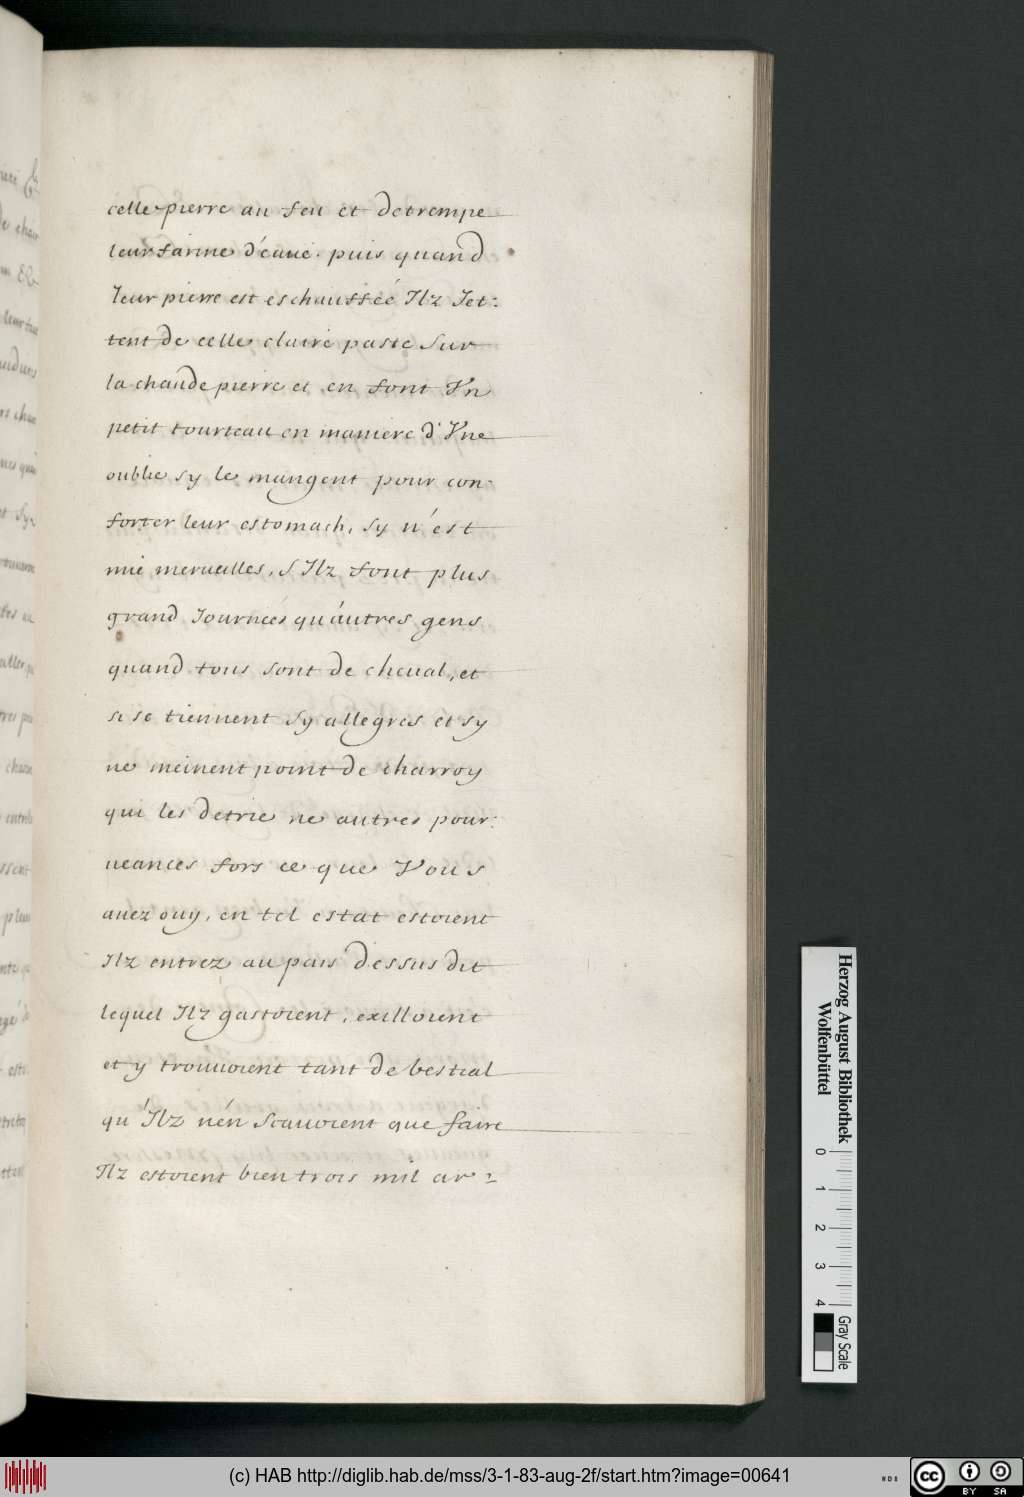 celle pierre au feu et detrempe
leur farine d'eaue. puis quand
leur pierre est eschauffeé Ilz Jet:
tent de celle claire paste sur
la chaude pierre et en font Vn
petit tourteau en maniere d'Vne
oublie sy le mangent pour con-
forter leur estomach, sy n'est
mie merueilles, s Ilz font plus
grand Journeés qu'autres gens
quand tous sont de cheual, et
si se tiennent sy allegres et sy
ne meinent point de charroy
qui les detrie ne autres pour:
ueances fors ce que Vous
auez ouy, en tel estat estoient
Ilz entrez au pais dessus dit
lequel Ilz gastoient, exilloient
et y trouuoient tant de bestial
qu'Ilz n'en scauoient que faire
Ilz estoient bien trois mil ar:
Herzog August Bibliothek
Wolfenbüttel
0 1 2 3 4
Gray Scale
(c) HAB http://diglib.hab.de/mss/3-1-83-aug-2f/start.htm?image=00641
WDB
cc BY SA